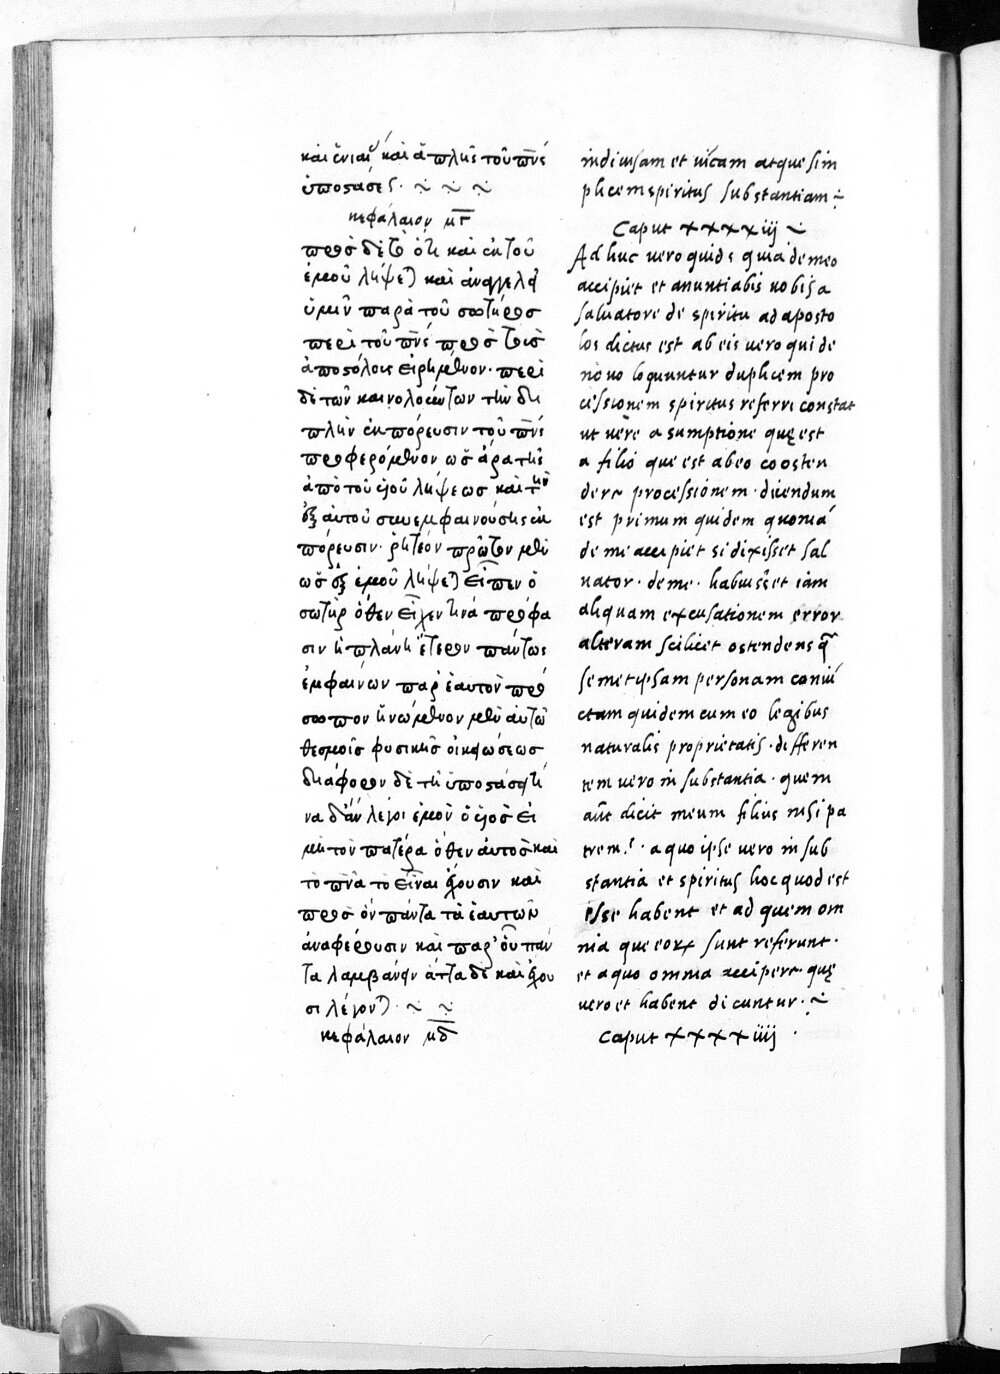 καὶ ἑνιαί καὶ ἁπλῆς τοῦ πνς
ὑποστάσεως
κεφάλαιον μγ
πρὸς δὲ τὸ ὅτι καὶ ἐκ τοῦ
ἐμοῦ λήψεται καὶ ἀναγγελεῖ
ὑμῖν παρὰ τοῦ σωτῆρος
περὶ τοῦ πνς πρὸς τοὺς
ἀποστόλους εἰρημένον· περὶ
δὲ τῶν καινολογούντων τὴν δι
πλὴν ἐκπόρευσιν τοῦ πνς
προφερόμενον ὡς ἄρα τῆς
ἀπὸ τοῦ υἱοῦ λήψεως καὶ τὴν
ἐξ αὐτοῦ συνεμφαινούσης ἐκ
πόρευσιν· ῥητέον πρῶτον μὲν
ὡς ἐξ ἐμοῦ λήψεται εἶπεν ὁ
σωτὴρ ὅθεν εἶχεν τινὰ πρόφα
σιν ἡ πλάνη ἕτερον πάντως
ἐμφαίνων παρ' ἑαυτὸν πρό
σωπον ἡνωμένον μὲν αὐτῶ
θεσμοῖς φυσικῆς οἰκειώσεως
διάφορον δὲ τῆ ὑποστάσει τί
να δ' ἂν λέγοι ἐμὸν ὁ υἱὸς εἰ
μὴ τὸν πατέρα ὅθεν αὐτὸς καὶ
τὸ πνα τὸ εἶναι ἔχουσιν καὶ
πρὸς ὃν πάντα τὰ ἑαυτῶν
ἀναφέρουσιν καὶ παρ' οὗ πάν
τα λαμβάνειν ἅττα δὲ καὶ ἔχου
σι λέγονται
κεφάλαιον μδ
indivisam et unicam atque sim
plicem spiritus substantiam
Caput xxxxiij
Ad huc vero quid quia de meo
accipiet et anuntiabis vobis a
salvatore de spiritu ad aposto
los dictus est ab eis vero qui de
novo loquuntur duplicem pro
cessionem spiritus referri constat
ut vere a sumptione quę est
a filio que est ab eo coosten
dere processionem· dicendum
est primum quidem quoniam
de me accipiet si dixisset sal
vator· de me· habuisset iam
aliquam excusationem error
alteram scilicet ostendens
semetipsam personam coniun
ctam quidem cum eo legibus
naturalis proprietatis· differen
tem vero in substantia· quem
aut dicit meum filius nisi pa
trem· a quo ipse vero in sub
stantia et spiritus hoc quod est
esse habent et ad quem om
nia que eorum sunt referunt·
et a quo omnia accipere quę
vero et habent dicuntur·
Caput xxxxiiij